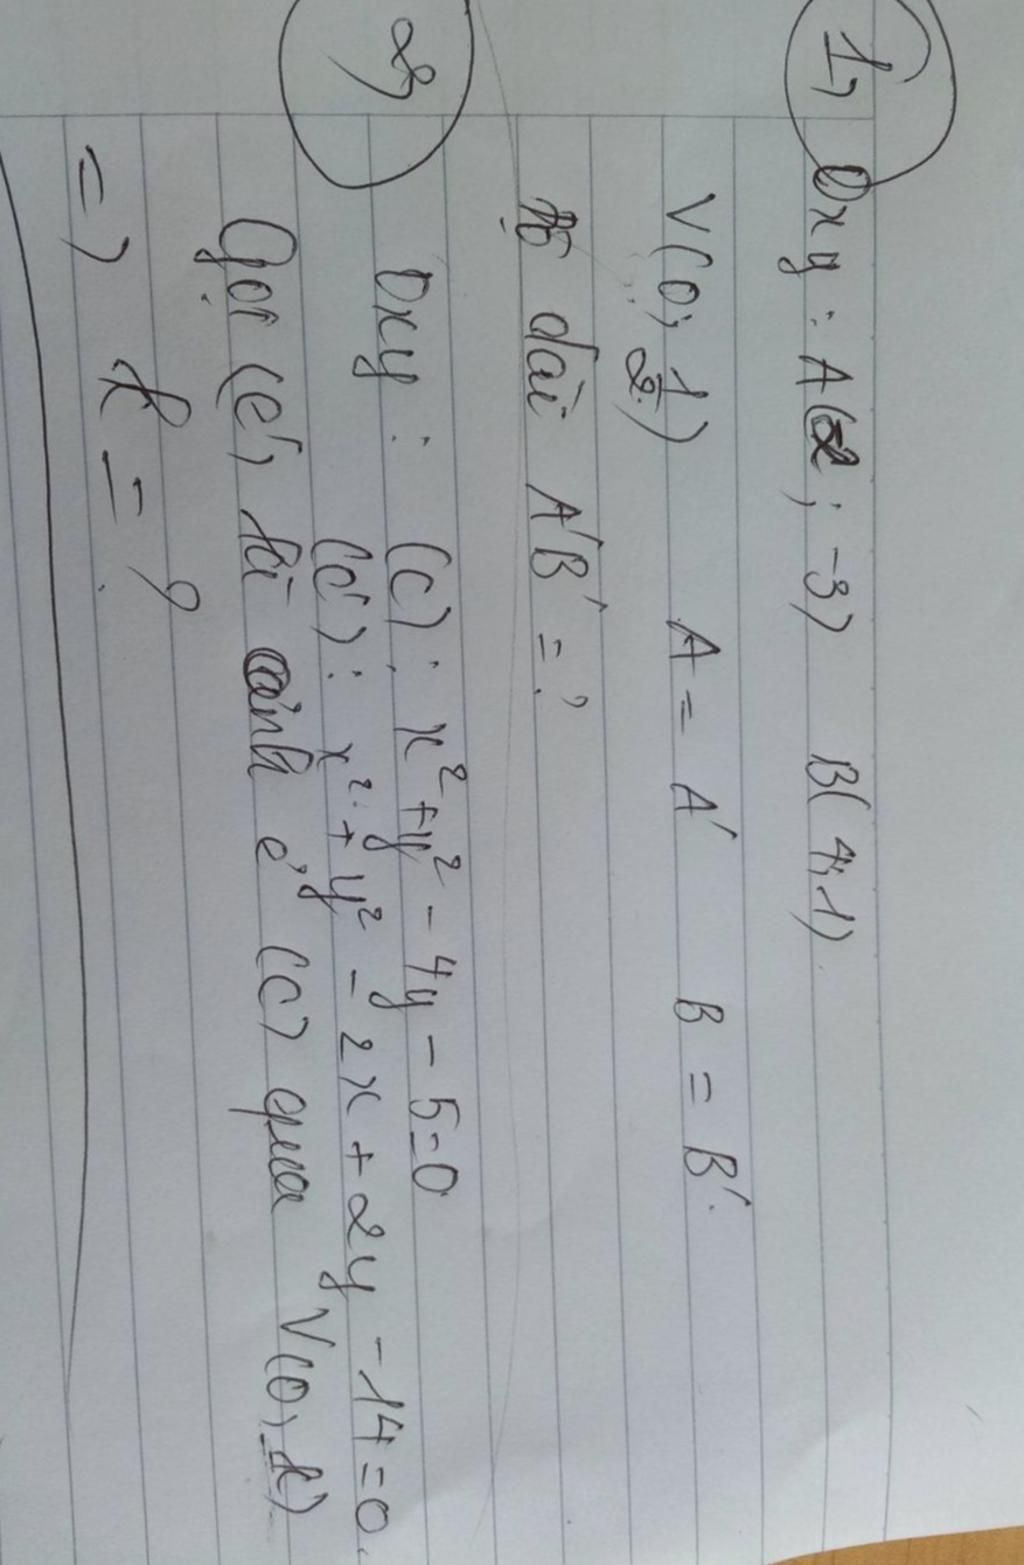 1, Oxy : A(2 ; -3) B( 4; 1)
V(O; 1/2) A = A' B = B'.
Độ dài A'B' = ?
2, Oxy : (C) : x² + y² - 4y - 5 = 0
(C') : x² + y² - 2x + 2y - 14 = 0.
Gọi (C') là ảnh c' (C) qua V(O, k)
=> k = ?